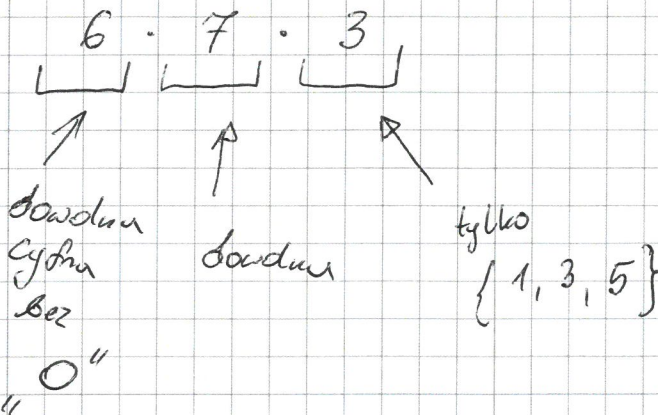 6 · 7 · 3
dowolna
cyfra
bez
"0"
dowolna
tylko
{1, 3, 5}